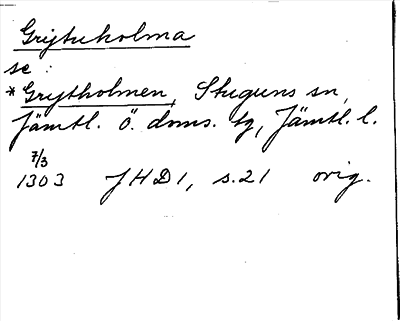 Grytuholma
se :
* Grytholmen, Stuguns sn,
Jämtl. Ö. doms. tg, Jämtl. l.
7/3
1303 JHD 1, s. 21 orig.